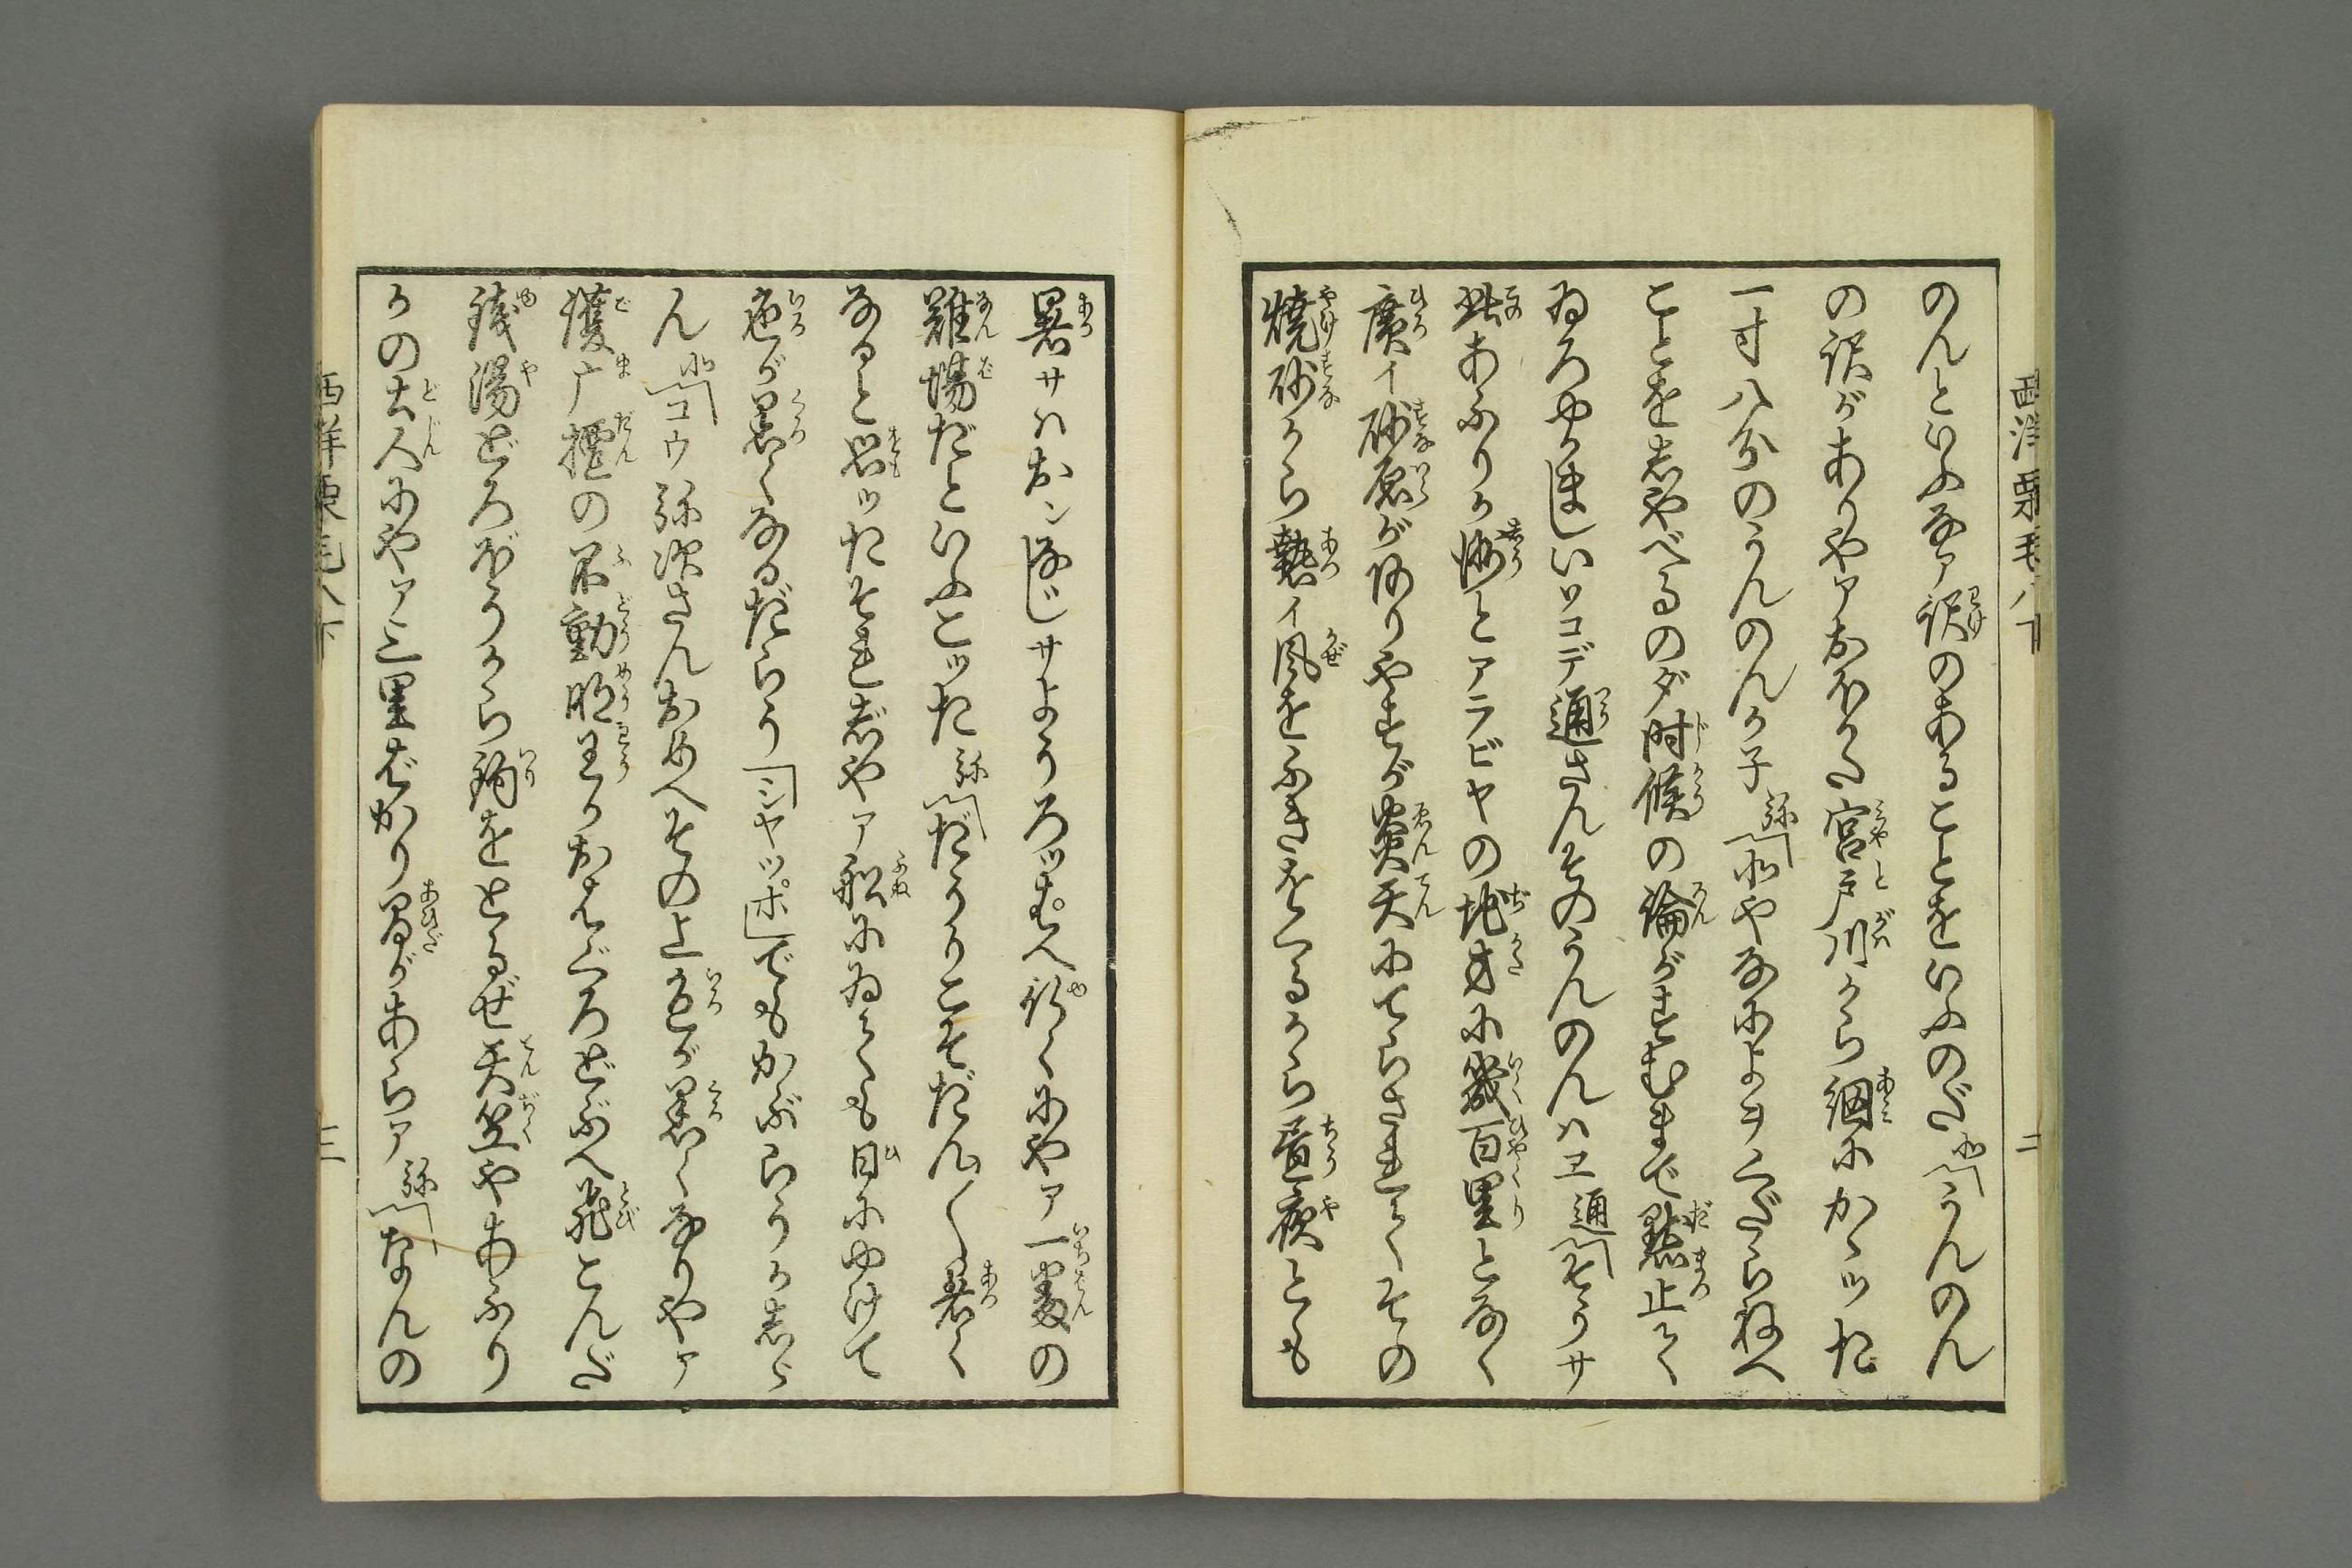 西洋栗毛 八下
二
のんといふなア訳のあることをいふのだ 北「うんのん
の訳がありやアおほかた宮戸川から網にかゝツた
一寸八分のうんのんか子 弥「北やなによヲくだらねへ
ことをしやべるのダ時候の論がすむまで黙止て
ゐろやかましいソコデ通さんそのうんのんハヱ 通「そうサ
此あふりか洲とアラビヤの地きに幾百里となく
廣イ砂原がありやすが炎天にてらされてその
焼砂から熱イ風をふきをくるから昼夜とも
暑サハおンなじサようろツぱへ行くにやア一番の
難場だといふこツた 弥「だうりこそだん〳〵暑く
なると思ツたそれじやア船にゐても日にやけて
色が黒くなるだらう「シヤツポ」でもかぶらうかしら
ん 北「コウ弥次さんおめへその上色が黒くなりやア
護广壇の不動明王かおはぐろどぶへ飛こんだ
銭湯どろぼうから釣をとるぜ天竺やあふり
かの土人にやア三里ばかり間があらア 弥「なんの
西洋栗毛八下
三